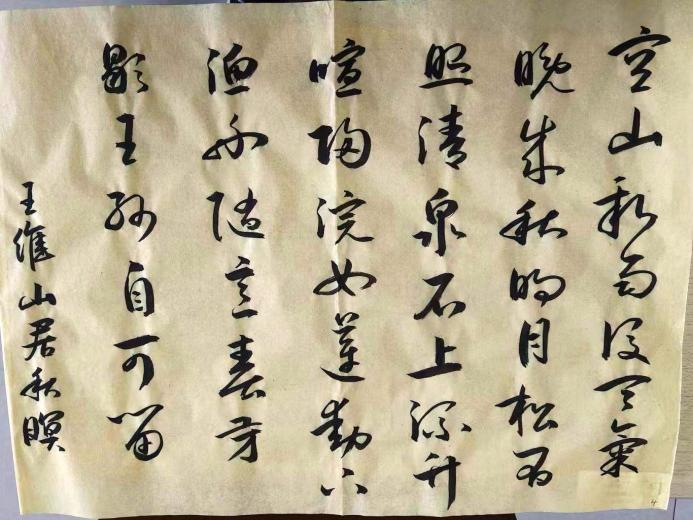 空山新雨後天氣
晚來秋明月松間
照清泉石上流竹
喧歸浣女蓮動下
漁舟隨意春芳
歇王孫自可留
王維山居秋暝
4